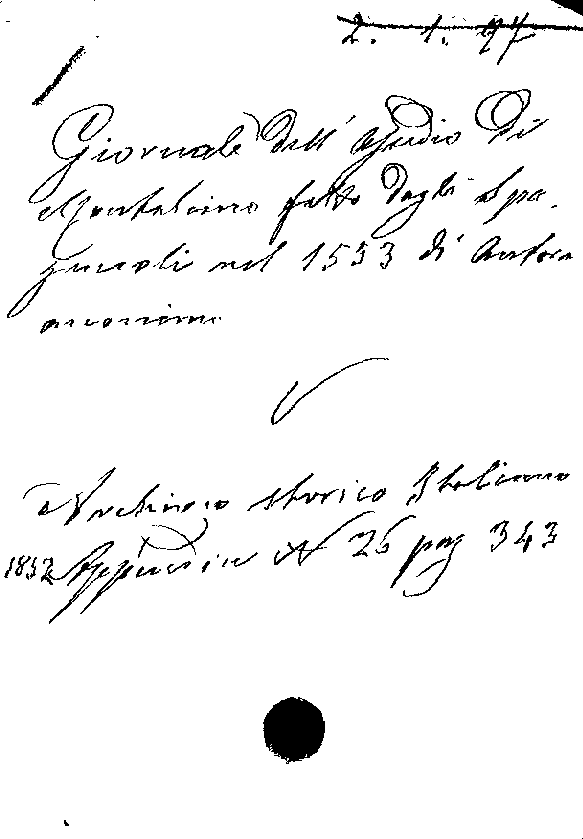 2. 1. 97
Giornale dell' assedio di
Montalcino fatto dagli Spa-
gnuoli nel 1553 di Autore
anonimo
Archivio storico Italiano
1852 Appendice N 26 pag 343